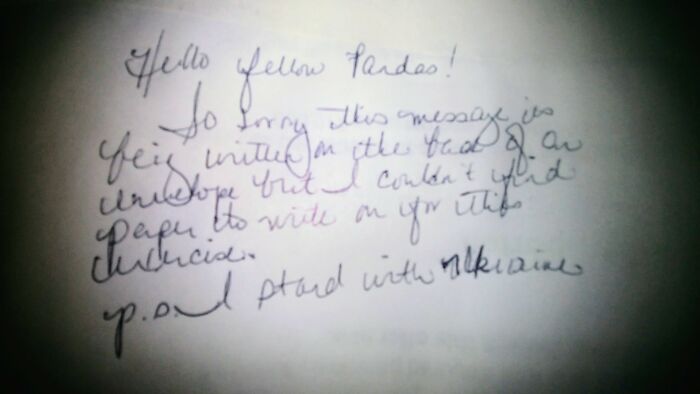 Hello fellow Pandas!
So sorry this message is
being written on the back of an
envelope but I couldn't find
paper to write on for this
exercise.
p.s. I stand with Ukraine